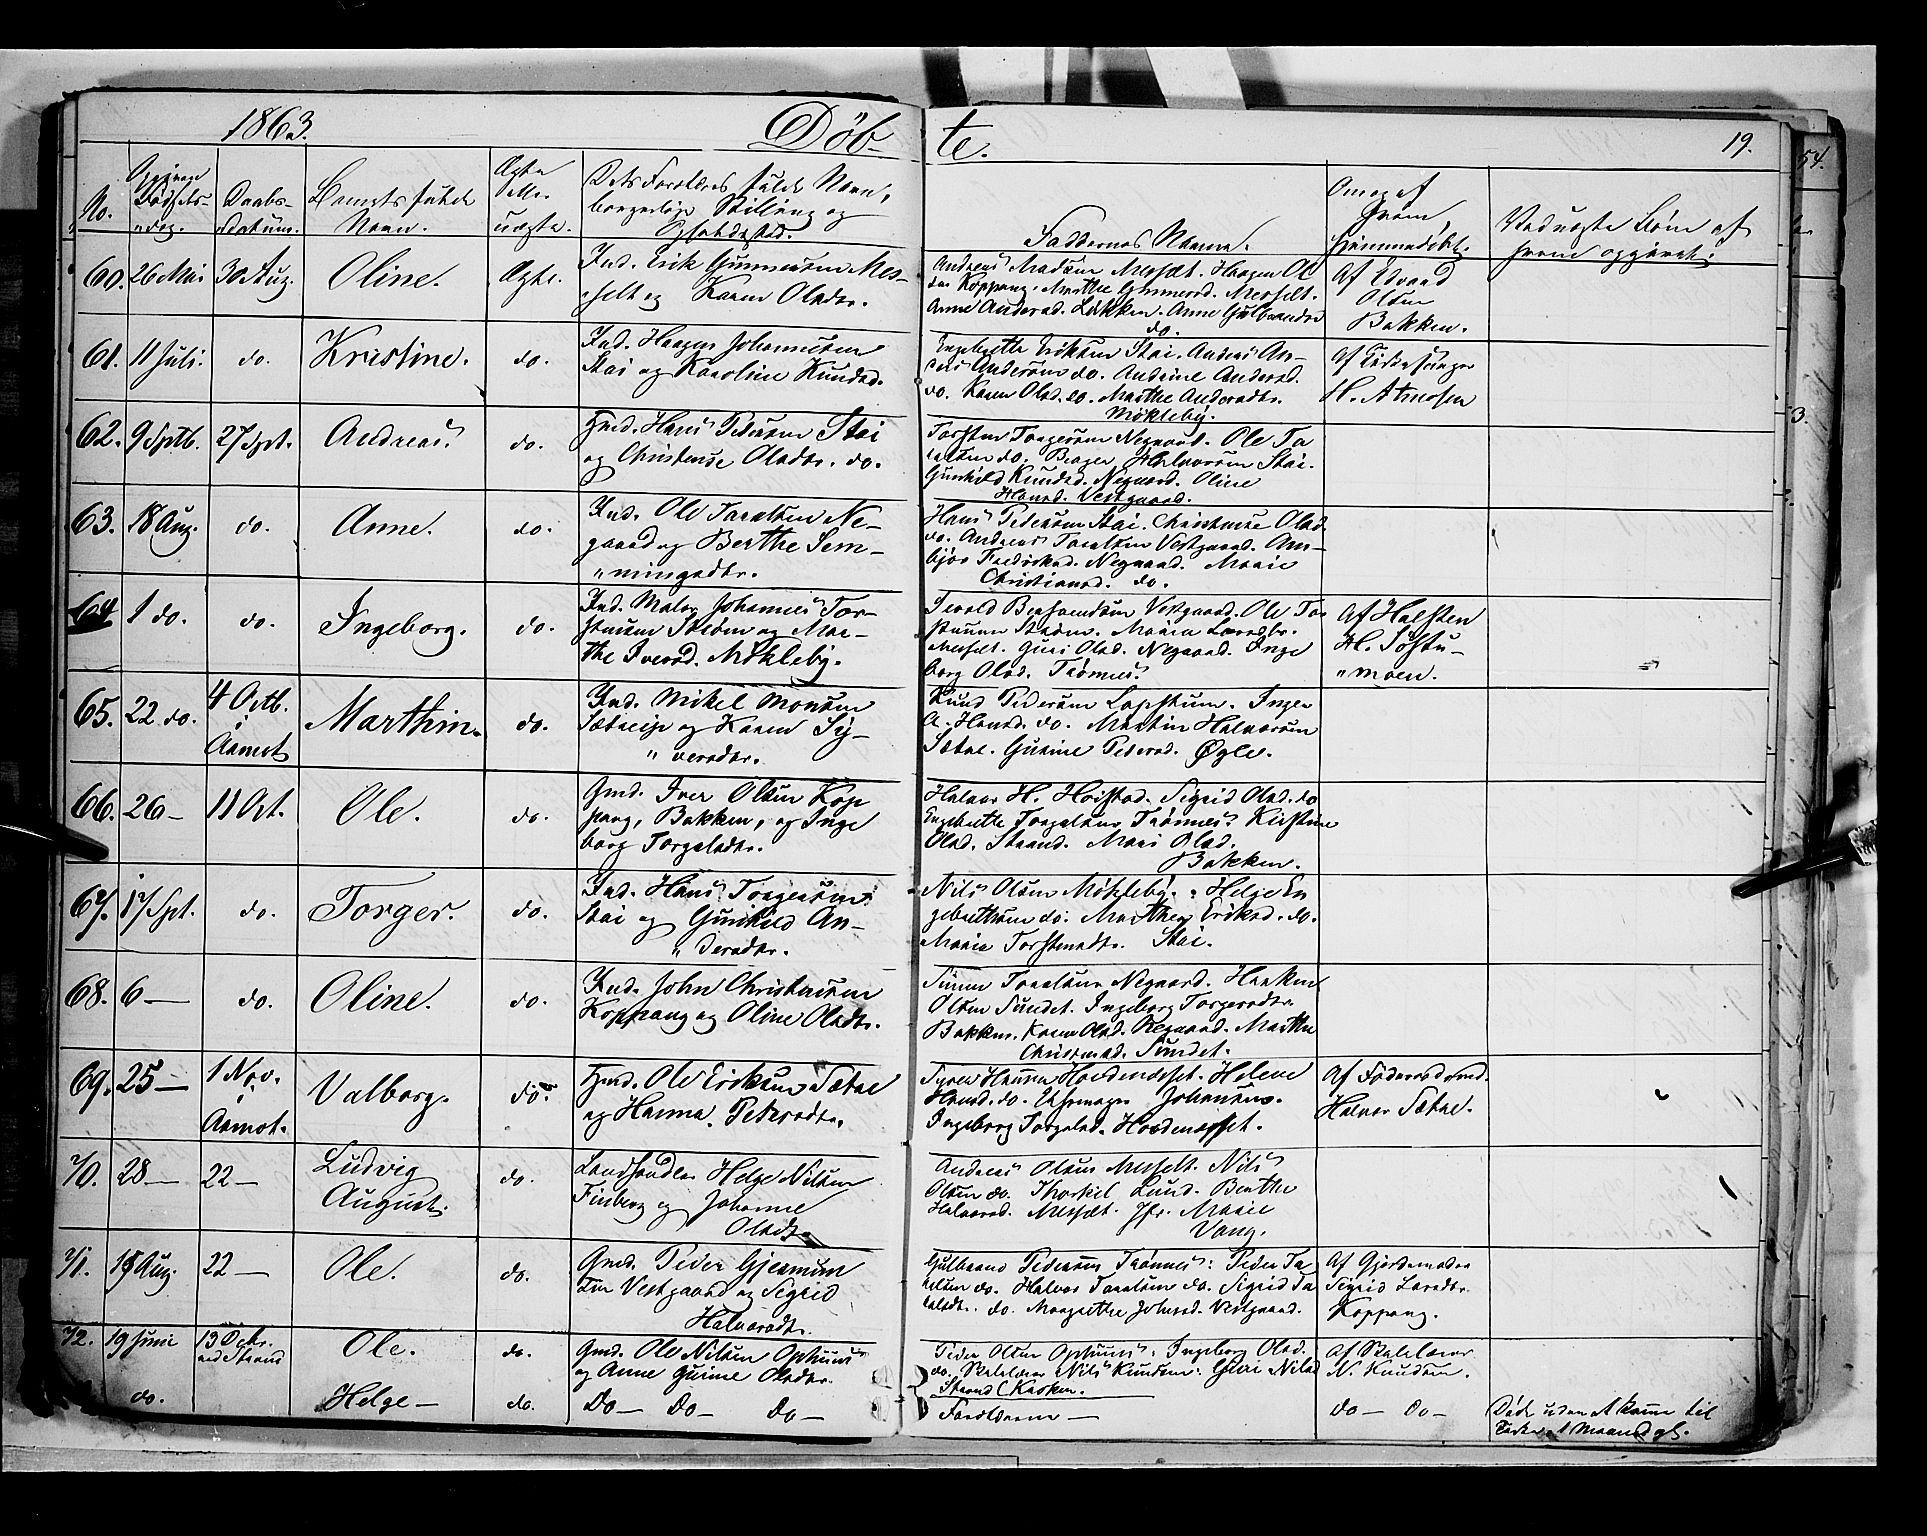 1863.
Döb-
te.
19.
54.
No.
Fødsels-
Daabs-
Barnets fulde
Ægte
eller
uægte.
Navn.
datum.
Forældres fulde Navn,
borgerlige Stilling og
Faddernes Navne.
hjemmedøbt.
60. 26 Mai 30 Aug. Oline. Ægte.
Ind. Erik Gunnersøn Mes-
selt og Karen Olsdtr.
Andreas Madsøn Messelt. Haagen Ol
Koppang. Marthe Gunnersd. Messelt.
Anne Andersd. Løkken. Anne Gulbrandsd
do.
Af Edvard
Olsen
Bakken.
61. 11 Juli. do. Kristine. do.
Ind. Haagen Johannesøn
Stai og Karoline Knudsd.
Engebrette Eriksøn Stai. Andreas An-
Andersøn do. Andrine Andersd.
do. Karen Olsd. do. Marthe Andersdtr.
Møkleby.
Af Kirkesanger
H. Arnesen
62. 9 Sptb. 27 Spt. Andreas. do.
Hans Pedersøn Stai
og Christense Olsdtr. do.
Torsten Torgersøn Negaard. Ole Ta
do. Halvorsøn Stai.
Gunhild Knudsd. Negaard. Oline
Hansd. Vestgaard.
63. 18 Aug. do. Anne. do.
Ind. Ole Taraldsen Ne-
gaard og Berthe Sem-
"mingsdtr.
Hans Pedersøn Stai. Christense Olsd.
do. Andreas Taraldsen Vestgaard. Am-
bjør Fredriksd. Negaard. Marie
Christiansd. do.
64 1 do. do. Ingeborg. do.
Ind. Maler Johannes Tor-
stensen Strøm og Mar-
the Iversd. Møkleby.
Vestgaard. Ole Tor
stensen Strøm. Maria Larsdtr.
Messelt. Guri Olsd. Negaard. Inge
borg Olsd. Trønnes.
Af Halsten
H.
"moen.
65. 22 do. 4 Octb. Marthin. do.
i
Aamot
Ind. Mikel Monsøn
og Karen Sy-
"versdtr.
Knud Pedersøn Inger
A. Hansd. do. Martin Halvorsøn
Sætre. Gurine Pedersd. Øgle.
66. 26 — 11 Oct. Ole. do.
Gmd. Iver Olsen Kop
pang, Bakken, og Inge
borg Torgalsdtr.
Halvor H. Hoistad. Sigrid Olsd. do
Engebrette Torgalsøn Trønnes. Kirstine
Olsd. Strand. Mari Olsd.
Bakken.
67. 17 Spt. do. Torger. do.
Ind. Hans Torgersøn
Stai og Gunhild An-
"dersdtr.
Nils Olsen Møkleby. Helge En
gebrethsøn do. Marthe Eriksd. do.
Marie Torstensdtr. Stai.
68. 6 — do. Oline. do.
Ind. John Christensen
Koppang og Oline Olsdtr.
Simen Taraldsøn Negaard. Haaken
Olsen Sundet. Ingeborg Torgersdtr.
Bakken. Karen Olsd. Negaard. Marthe
Sundet.
69. 25 — 1 Nov. Valborg. do.
i
Aamot.
Gmd. Ole Eriksen Sætre
og Hanna Pedersdtr.
Syver Hansen Helene
Hansd. do. Johansen.
Ingeborg Torgalsd.
Af Føderaadsmd.
Halvor Sætre.
70. 28 — 22 — Ludvig
August. do.
Landhandler Helge Nilsen
Finberg og Johanne
Olsdtr.
Andreas Olsen Messelt. Nils
Olsen do. Thorkel Lund. Berthe
Halvorsd. Messelt. Jfr. Marie
Vang.
71. 19 Aug. 22 — Ole. do.
Gmd. Peder Gjermun
dsen Vestgaard og Sigrid
Halvorsdtr.
Gulbrand Pedersøn Trønnes. Peder Ta
do. Halvor Taraldsøn do. Sigrid Ta
raldsdtr. do. Margrethe Johnsd. Vestgaard.
Af Gjordemoder
Sigrid Larsdtr.
Koppang.
72. 19 Juni 13 Octbr. Ole. do.
ved Strand
Gmd. Ole Nilsen Ophuus
og Anne Gurine Olsdtr.
Peder Olsen Ophuus. Ingeborg Olsd.
do. Skolelærer Nils Knudsøn. Guri Nilsd
Strand
Af Skolelærer
N. Knudsøn.
do. Helge — do. Do — Do — Do —
Forældrene —
do — do —
Døde uden at komme til
Kirken 1 Maaned gl.